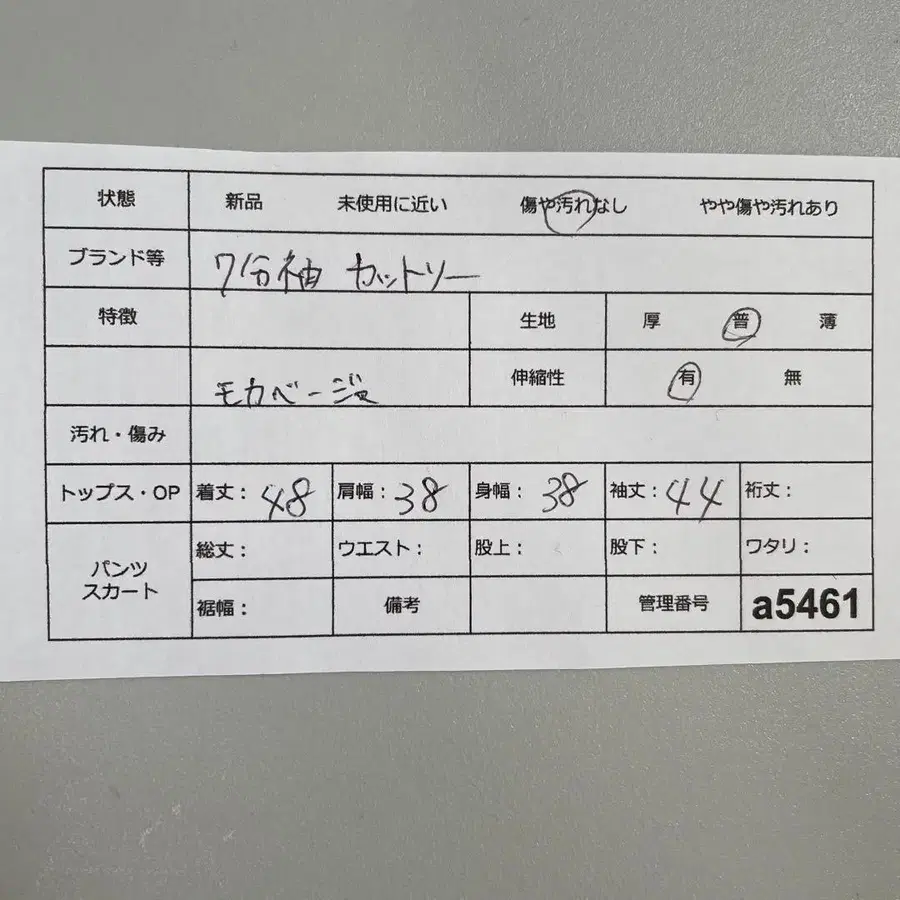 状態 新品 未使用に近い 傷や汚れなし やや傷や汚れあり
ブランド等 7分袖 カットソー
特徴 生地 厚 普 薄
モカベージュ 伸縮性 有 無
汚れ・傷み
トップス・OP 着丈: 48 肩幅: 38 身幅: 38 袖丈: 44 裄丈:
パンツ スカート 総丈: ウエスト: 股上: 股下: ワタリ:
裾幅: 備考 管理番号 a5461